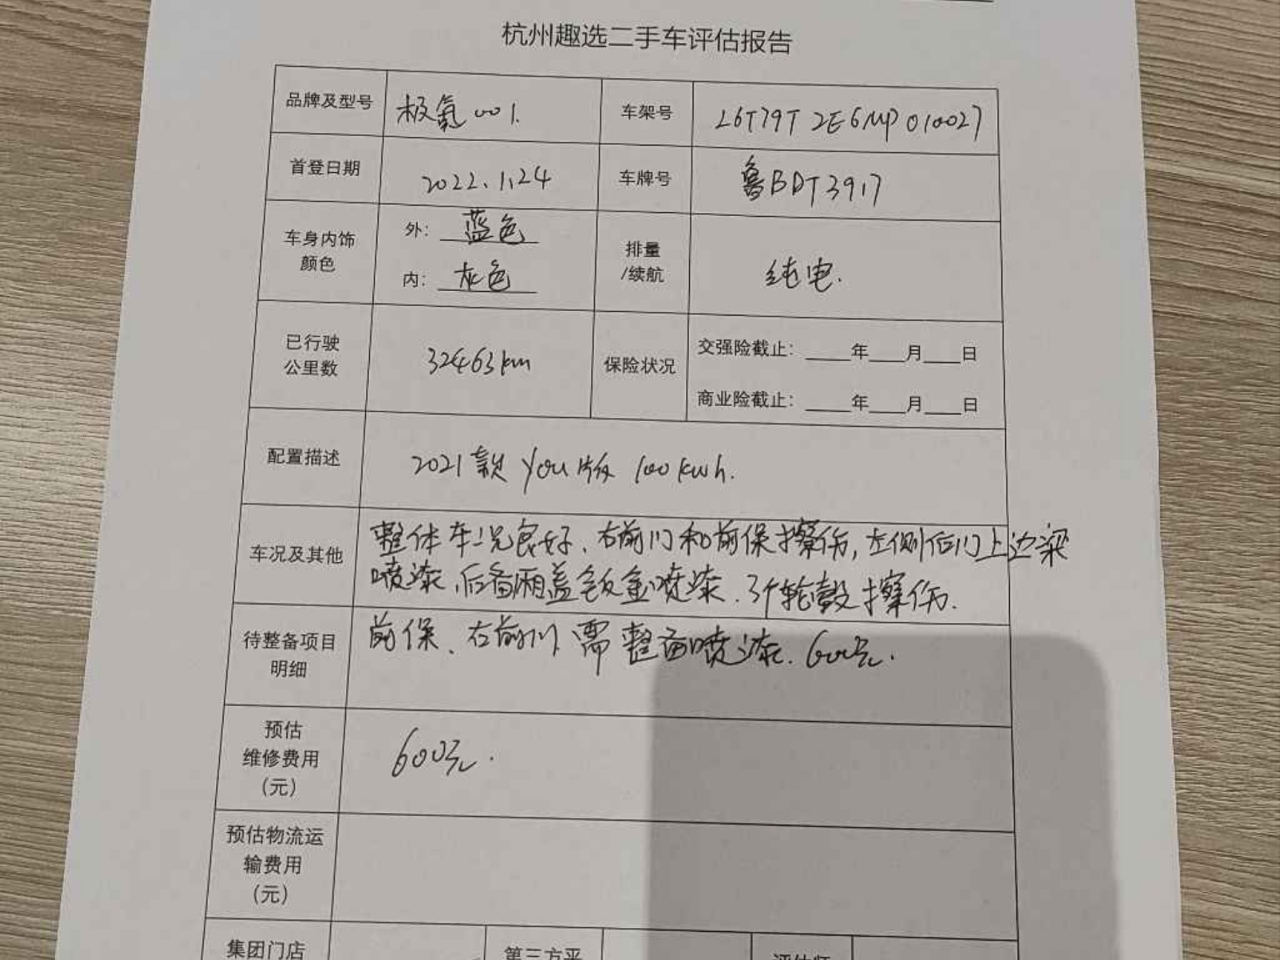 杭州趣选二手车评估报告
品牌及型号 极氪001. 车架号 L6T79T2E6MP010027
首登日期 2022.1.24 车牌号 鲁BDT3917
车身内饰
颜色
外: 蓝色
内: 灰色
排量
/续航
纯电.
已行驶
公里数
32463km
保险状况
交强险截止: ____年____月____日
商业险截止: ____年____月____日
配置描述 2021款 You版 100kwh.
车况及其他
整体车况良好. 右前门和前保擦伤, 左侧后门上边梁
喷漆. 后备厢盖钣金喷漆. 3个轮毂擦伤.
待整备项目
明细
前保、右前门 需整备喷漆. 600元.
预估
维修费用
(元)
600元.
预估物流运
输费用
(元)
集团门店 第三方平 评估师